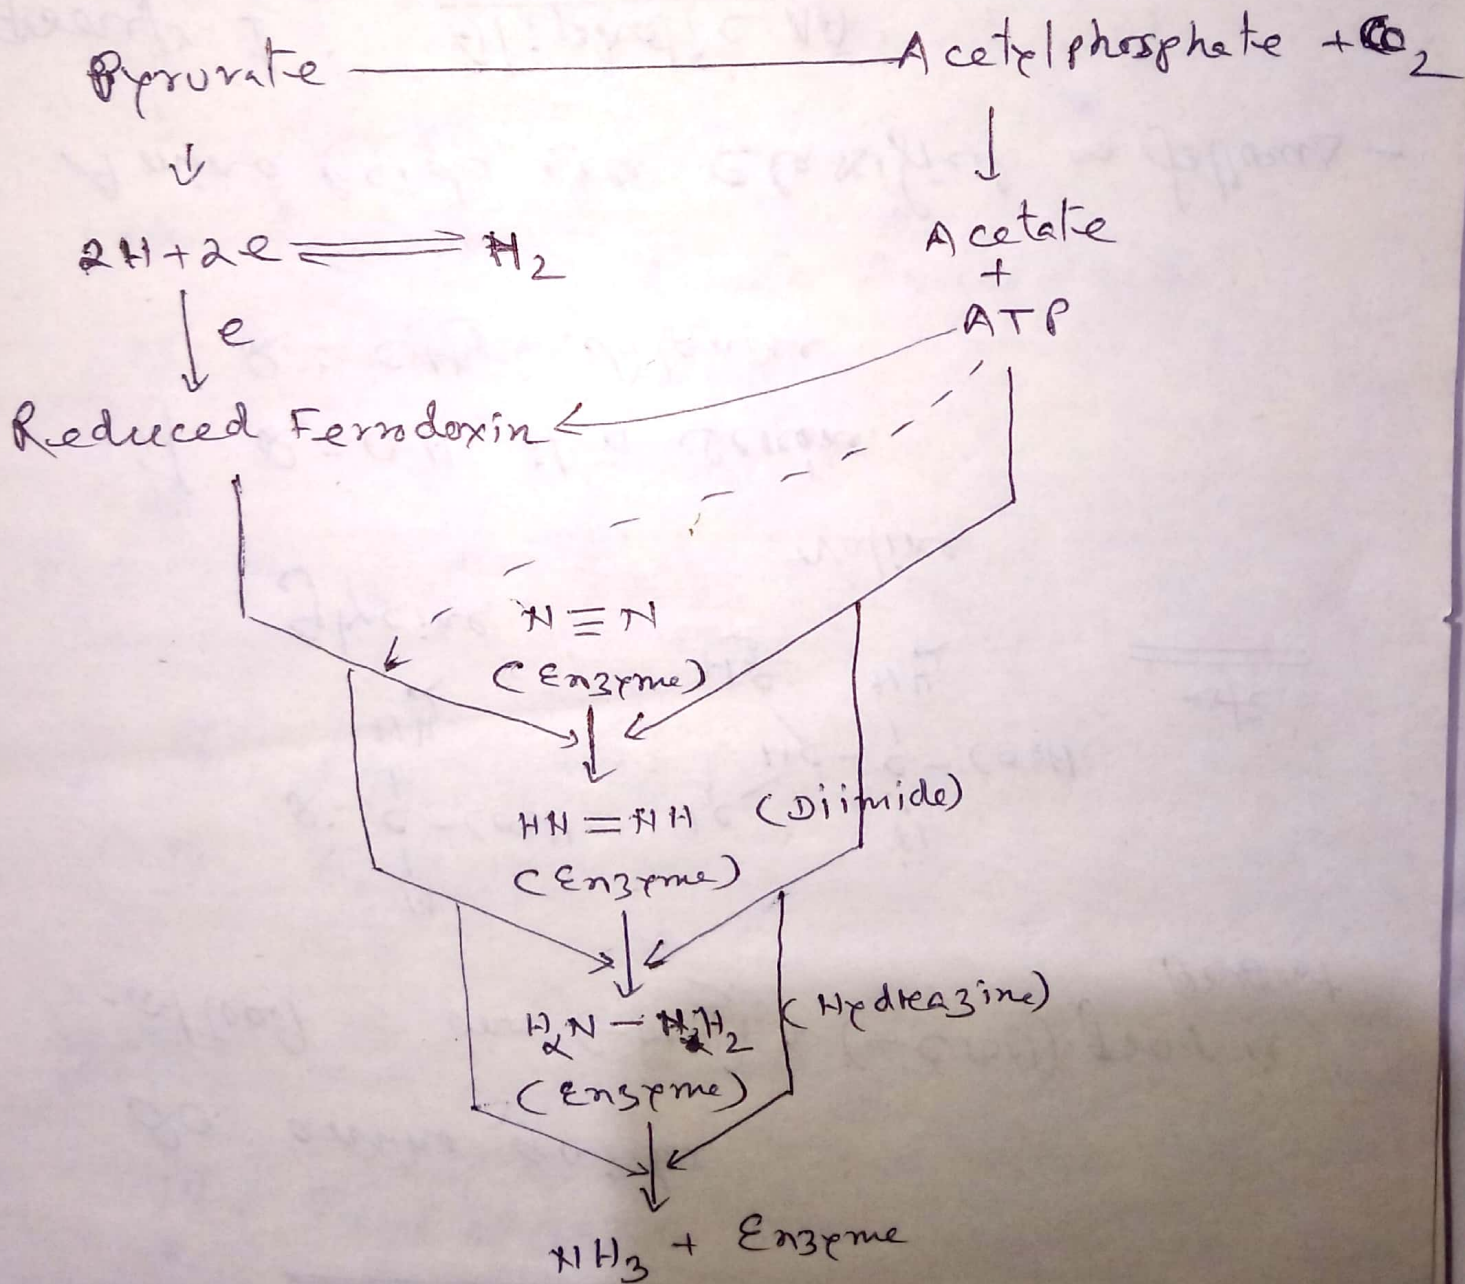 Pyruvate Acetylphosphate + CO2
2H+2e ⇌ H2
Acetate
+
ATP
e
Reduced Ferrodoxin
N≡N
(Enzyme)
HN=NH (Diimide)
(Enzyme)
H2N-NH2 (Hydrazine)
(Enzyme)
NH3 + Enzyme